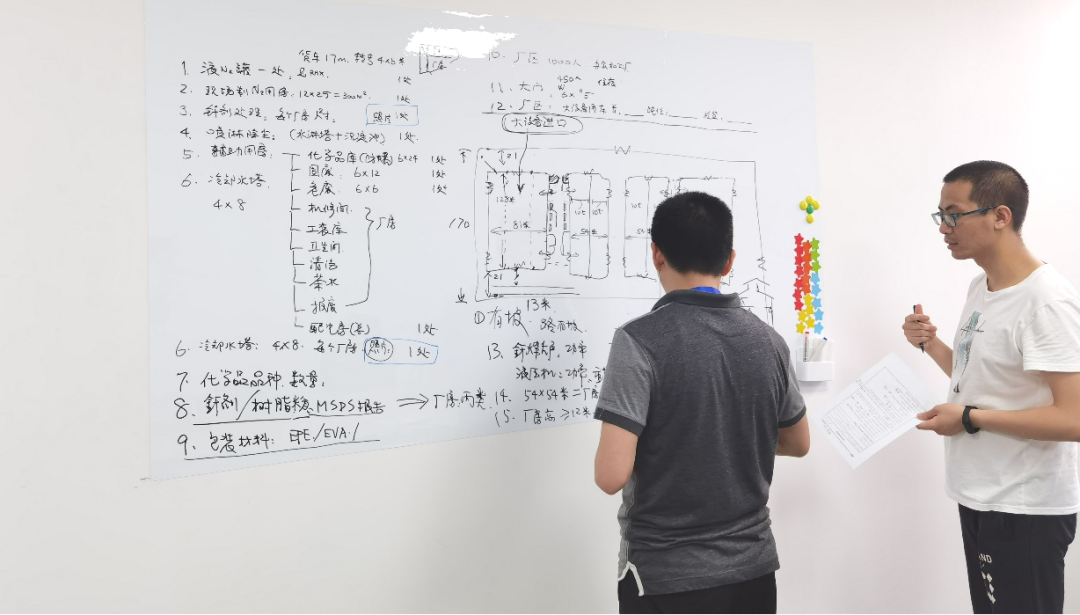 货车17m, 转弯
1. 液N₂罐一处,
1处
2. 现场制N₂用房: 12×25=300m². 1处
3. 钎剂处理, 每个厂房尺寸, 照片 1处
4. 除尘: (水淋塔+沉淀池) 1处
5. 辅助用房:
化学品库(防爆) 6×24 1处
固废: 6×12 1处
危废: 6×6 1处
6. 冷却水塔
4×8
机修间
工装库
卫生间
清洁
茶水
报废
厂房
配电房(总) 1处
6. 冷却水塔: 4×8. 每个厂房 1处
7. 化学品品种. 数量,
8. 钎剂/树脂 MSDS报告 ⇒ 厂房丙类.
9. 包装材料: EPE/EVA/
10. 厂区 1000人
11. 大门 450人 住宿
12. 厂区:
大设备进口
21
128米
81米
170
21
105 105
54米
105
13米
① 有坡
13. 钎焊炉, 功率
液压机: 功率,
14. 54×54米=厂房
15. 厂房高≥12米